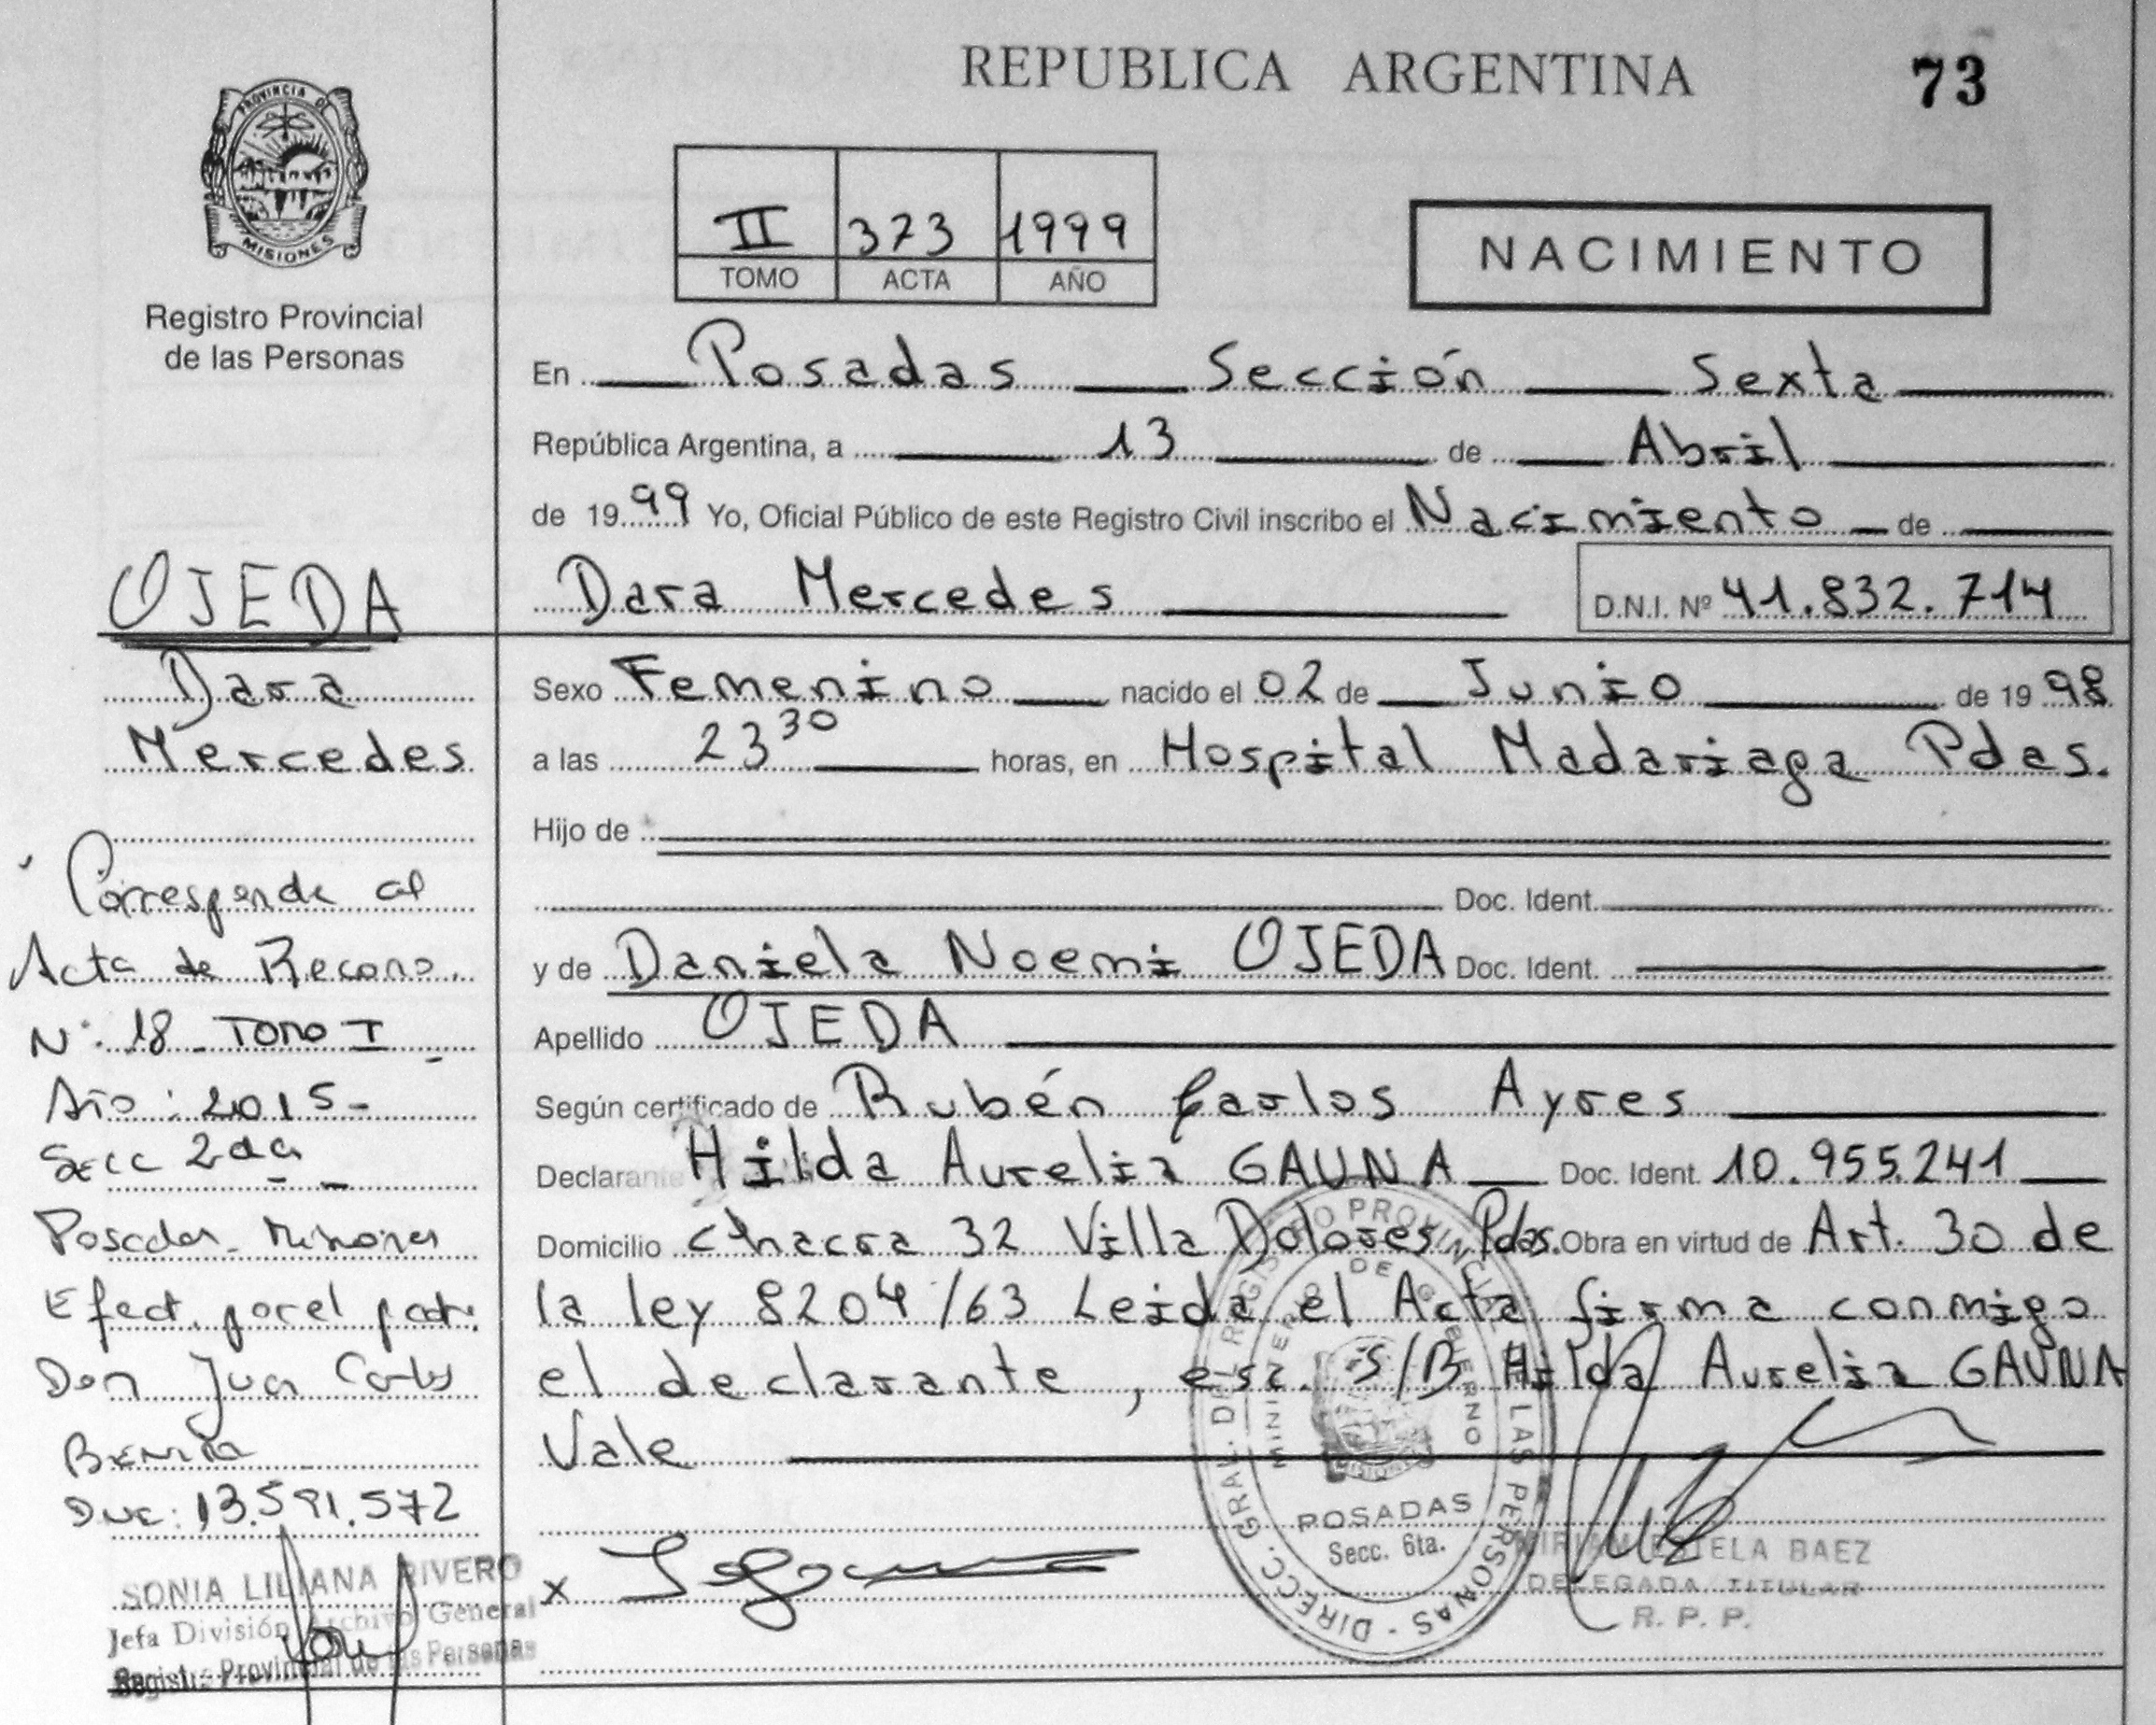 REPUBLICA ARGENTINA 73
PROVINCIA DE
MISIONES
Registro Provincial
de las Personas
II 373 1999
TOMO ACTA AÑO
NACIMIENTO
En Posadas Sección Sexta
República Argentina, a 13 de Abril
de 1999 Yo, Oficial Público de este Registro Civil inscribo el Nacimiento de
Dara Mercedes D.N.I. Nº 41.832.714
Sexo Femenino nacido el 02 de Junio de 1998
a las 23 30 horas, en Hospital Madariaga Pdas.
Hijo de
Doc. Ident.
y de Daniela Noemi OJEDA Doc. Ident.
Apellido OJEDA
Según certificado de Rubén Carlos Ayres
Declarante Hilda Aurelia GAUNA Doc. Ident. 10.955.241
Domicilio chacra 32 Villa Dolores Pdas. Obra en virtud de Art. 30 de
la ley 8204/63 Leida el Acta firma conmigo
el declarante, esc. S/B Hilda Aurelia GAUNA
Vale
OJEDA
Dara
Mercedes
Corresponde al
Acta de Recono.
Nº: 18 Tomo I
Año: 2015-
Secc 2da
Posadas - Misiones
Efect. por el padr.
Don Juan Carlos
DNI: 13.591.572
SONIA LILIANA RIVERO
Jefa División Archivo General
Registro Provincial de las Personas
x
DIRECC. GRAL. DEL REGISTRO PROVINCIAL DE LAS PERSONAS
MINISTERIO DE GOBIERNO
MISIONES
POSADAS
Secc. 6ta.
MIRIAM ESTELA BAEZ
DELEGADA TITULAR
R. P. P.